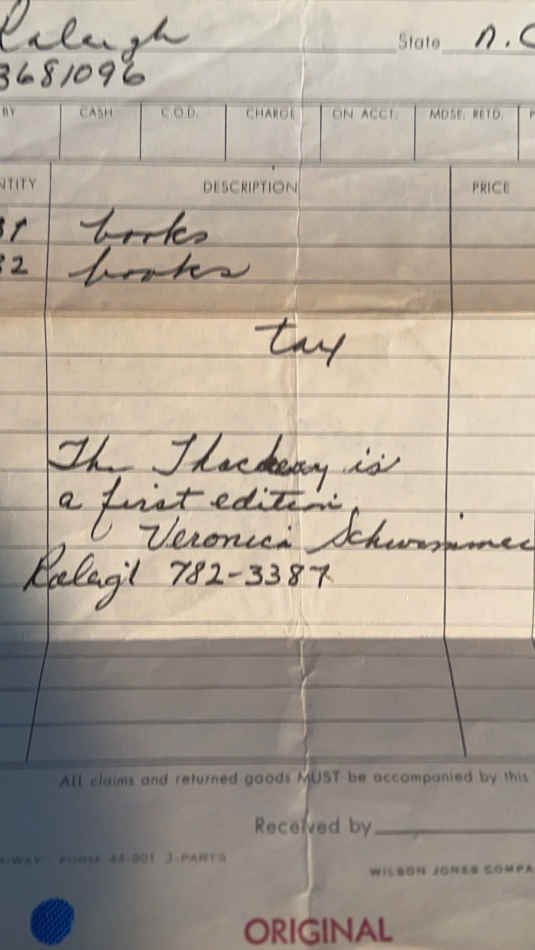 Raleigh State N.C
3681096
BY CASH C.O.D. CHARGE ON ACCT. MDSE. RETD.
NTITY DESCRIPTION PRICE
31 books
32 books
tax
The Thackeray is
a first edition.
Veronica Schwimmer
Raleigh 782-3387
All claims and returned goods MUST be accompanied by this
Received by
FORM 44-801 3-PARTS WILSON JONES COMPA
ORIGINAL